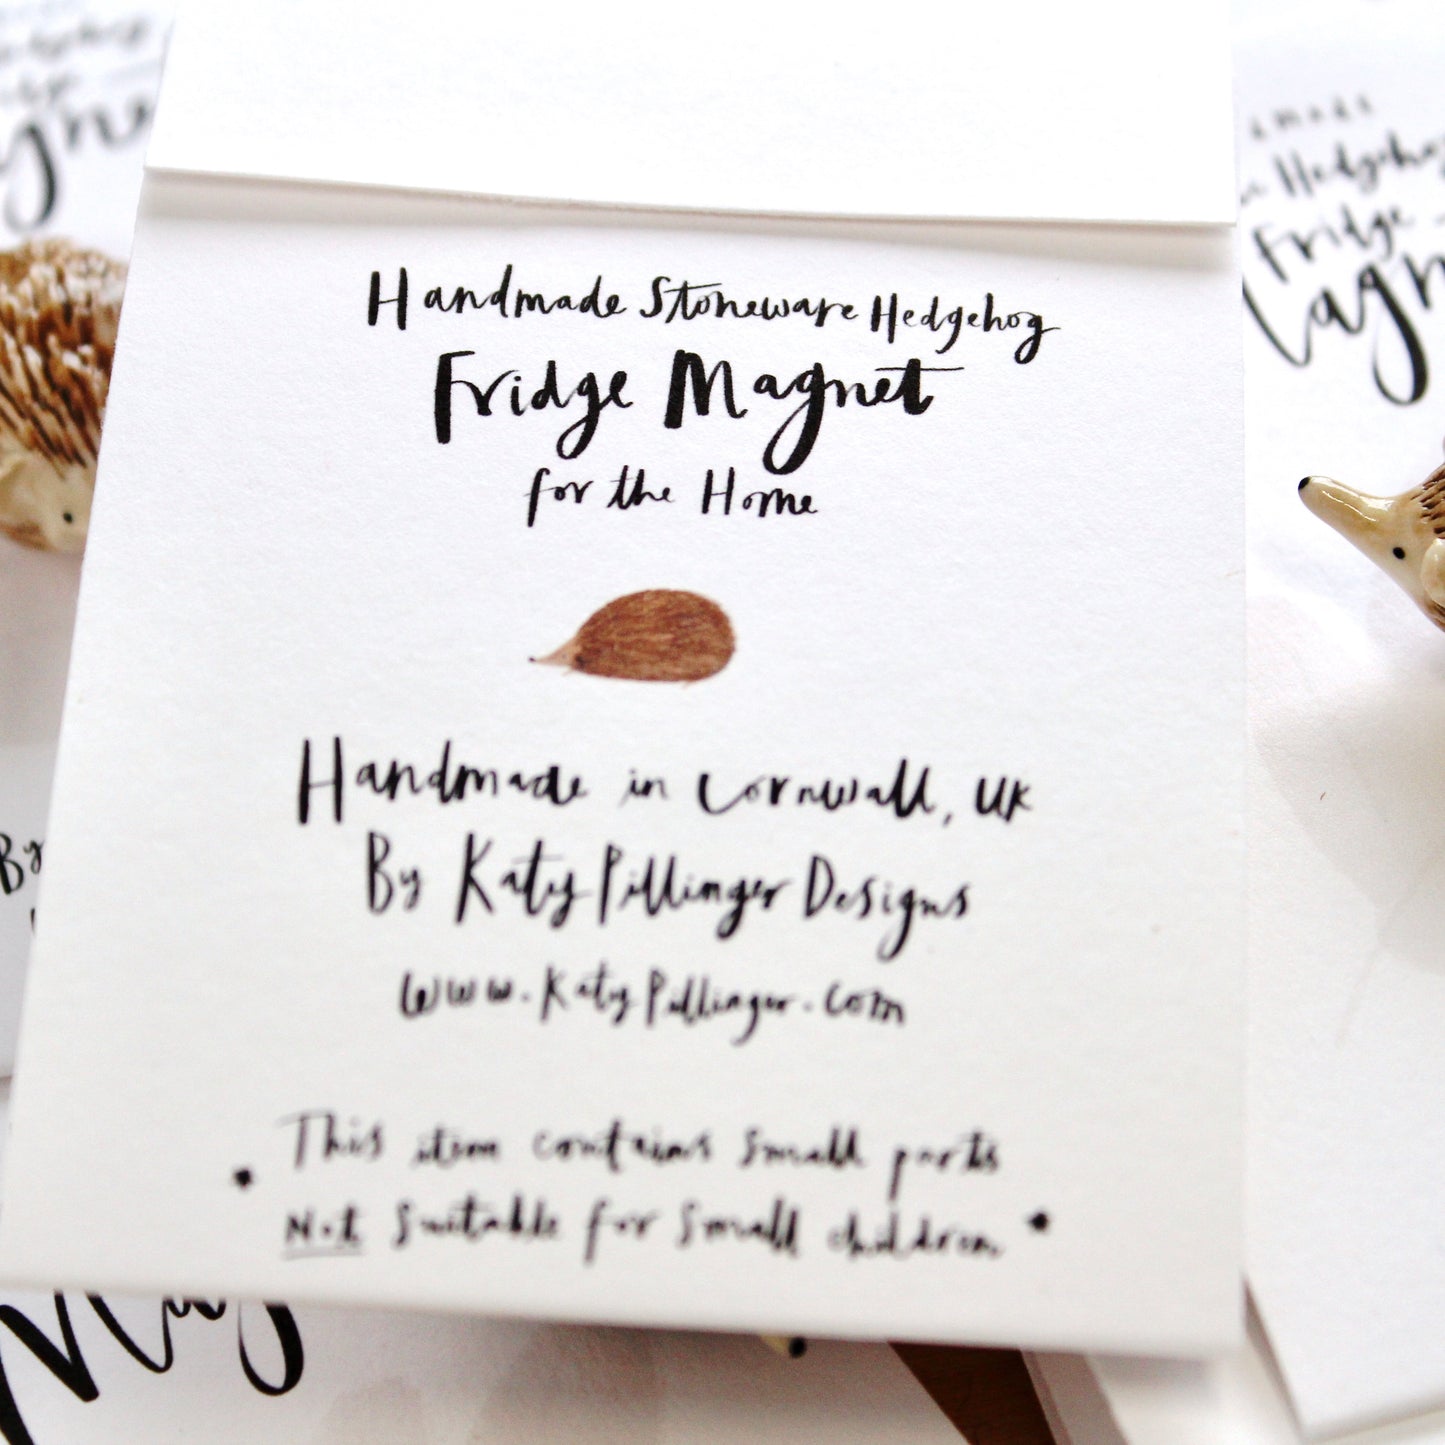 Handmade Stoneware Hedgehog
Fridge Magnet
for the Home
Handmade in Cornwall, UK
By Katy Pillinger Designs
www.KatyPillinger.com
This item contains small parts
* Not Suitable for Small children *
Hedgehog
Fridge
By